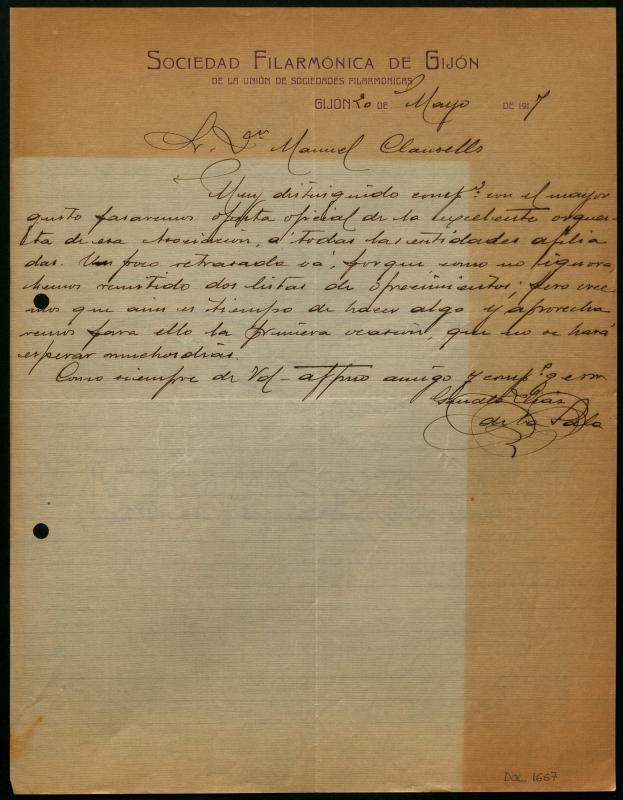 SOCIEDAD FILARMÓNICA DE GIJÓN
DE LA UNIÓN DE SOCIEDADES FILARMÓNICAS
GIJÓN 20 DE Mayo DE 1917
Sr. Dn Manuel Clausells
Muy distinguido compº: con el mayor
gusto pasaremos oferta oficial de la excelente orques-
ta de esa Asociación, á todas las entidades afilia
das. Un poco retrasada vá, porque como no ignora,
hemos remitido dos listas de ofrecimientos; pero cree
mos que aun es tiempo de hacer algo y aprovecha
remos para ello la primera ocasión, que no se hará
esperar muchos días.
Como siempre de Vd. affmo amigo y compº q e s m
de la Sala
DOC. 1667